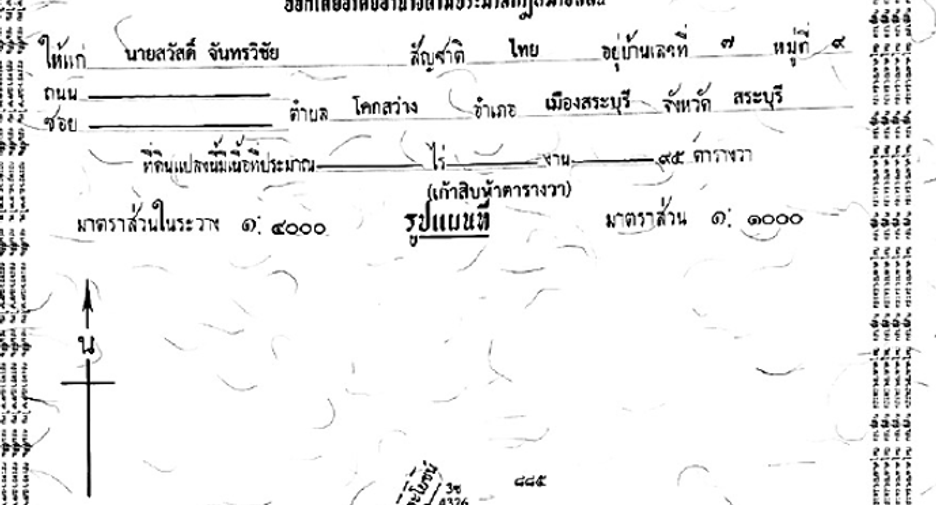 ออกโดยอาศัยอำนาจตามประมวลกฎหมายที่ดิน
ให้แก่ นายสวัสดิ์ จันทรวิชัย สัญชาติ ไทย อยู่บ้านเลขที่ ๗ หมู่ที่ ๙
ถนน
ซอย ตำบล โคกสว่าง อำเภอ เมืองสระบุรี จังหวัด สระบุรี
ที่ดินแปลงนี้มีเนื้อที่ประมาณ ไร่ งาน ๙๕ ตารางวา
(เก้าสิบห้าตารางวา)
มาตราส่วนในระวาง ๑: ๔๐๐๐ รูปแผนที่ มาตราส่วน ๑: ๑๐๐๐
น
3ซ ๘๘๕
4326